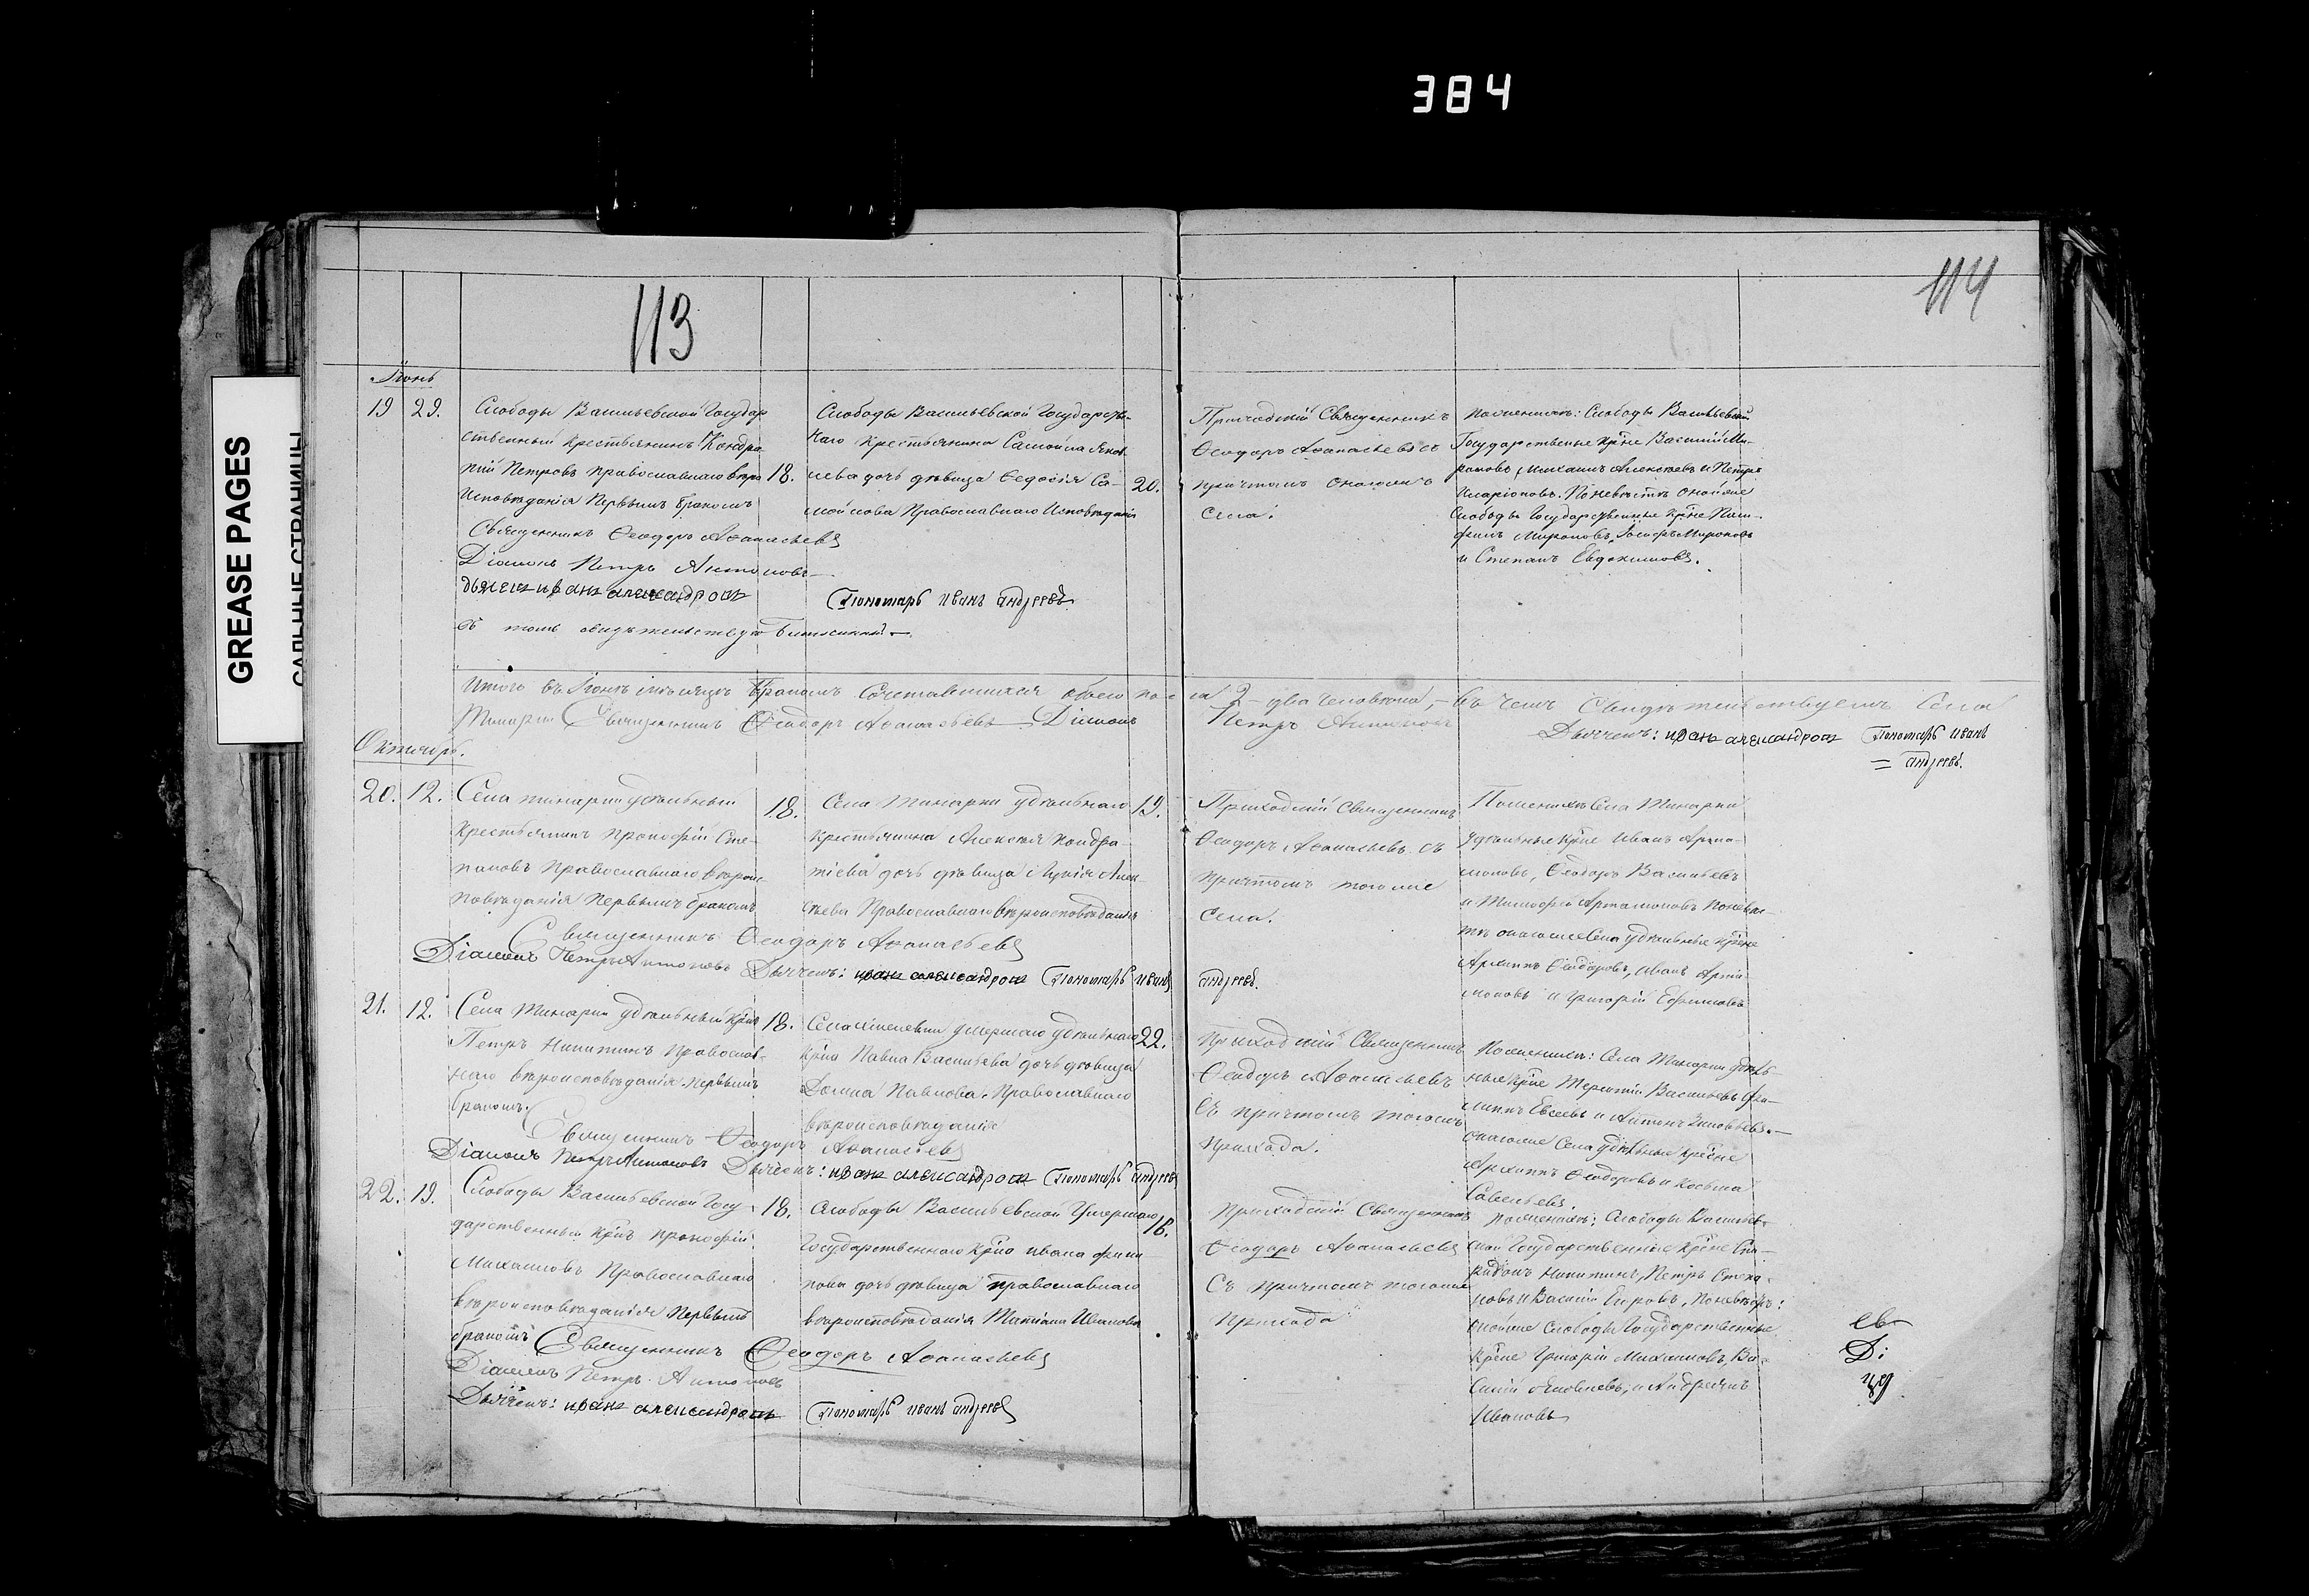 384
GREASE PAGES
САЛЬНЫЕ СТРАНИЦЫ
113
114
Іюнь
19 29.
Слободы Васильевской Государ
ственный крестьянинъ Кондра
тій Петровъ православнаго вѣро
исповѣданія первымъ бракомъ
18.
Слободы Васильевской Государствен
наго крестьянина Самойла Яков
лева дочь дѣвица Ѳедосія Са-
мойлова Православнаго Исповѣданія
20.
Приходскій Священникъ
Ѳеодоръ Аѳанасьевъ съ
причтомъ онагожъ
села.
По женихѣ: Слободы Васильевской
Государственные крѣне Василій Ми-
роновъ, Михаилъ Алексѣевъ и Петръ
Иларіоновъ. По невѣстѣ онойже
Слободы Государственные крѣне
Мироновъ, Мироновъ
и Степанъ Евдокимовъ.
Священникъ Ѳеодоръ Аѳанасьевъ
Діаконъ Петръ Антоновъ
дьячекъ иванъ александровъ
Пономарь иванъ андреевъ
Итого въ Іюнѣ мѣсяцѣ бракомъ сочетавшихся обоего по
ла 2 два человѣка, въ чемъ свидѣтельствуемъ Села
Священникъ Ѳеодоръ Аѳанасьевъ Діаконъ
Петръ Антоновъ
Дьячекъ: иванъ александровъ Пономарь иванъ
андреевъ.
Октябрь.
20. 12.
Села удѣльный
крестьянинъ Прокофій Сте-
пановъ Православнаго вѣроис-
повѣданія первымъ бракомъ
18.
Села удѣльнаго
крестьянина Алексѣя Кондра-
тіева дочь дѣвица Алек
сѣева Православнаго вѣроисповѣданія
19.
Приходскій Священникъ
Ѳеодоръ Аѳанасьевъ съ
причтомъ тогоже
села.
По женихѣ Села
удѣльные крѣне Иванъ Арта-
моновъ, Ѳеодоръ Васильевъ
и Тимофей Артамоновъ По невѣс-
тѣ онагоже села удѣльные крѣне
Архипъ Ѳеодоровъ, Иванъ Арта
моновъ и Григорій Ефимовъ
Священникъ Ѳеодоръ Аѳанасьевъ
Діаконъ Петръ Антоновъ Дьячекъ: иванъ александровъ Пономарь иванъ
андреевъ.
21. 12.
Села удѣльный крѣнъ
Петръ Никитинъ Православ-
наго вѣроисповѣданія первымъ
бракомъ.
18.
Села умершаго удѣльнаго
крѣна Павла Васильева дочь дѣвица
Домна Павлова Православнаго
вѣроисповѣданія
22.
Приходскій Священникъ
Ѳеодоръ Аѳанасьевъ
съ причтомъ тогожъ
прихода.
По женихѣ: Села удѣль-
ные крѣне Терентій Васильевъ Фи-
липъ Евсеевъ и Антонъ
онагоже села удѣльные крѣне
Архипъ Ѳеодоровъ и Косьма
Савельевъ.
Священникъ Ѳеодоръ Аѳанасьевъ
Діаконъ Петръ Антоновъ Дьячекъ: иванъ александровъ Пономарь андреевъ
22. 19.
Слободы Васильевской Госу
дарственный крѣнъ Прокофій
Михаиловъ Православнаго
вѣроисповѣданія первымъ
бракомъ
18.
Слободы Васильевской Умершаго
Государственнаго крѣна Ивана Филип
пова дочь дѣвица православнаго
вѣроисповѣданія Татіана Иванова
18.
Приходскій Священникъ
Ѳеодоръ Аѳанасьевъ
съ причтомъ тогоже
прихода
По женихѣ: Слободы Васильев-
ской Государственные крѣне Спи-
ридонъ Никитинъ, Петръ Степа-
новъ и Василій Егоровъ, По невѣстѣ:
онойже Слободы Государственные
крѣне Григорій Михаиловъ, Ва-
силій Яковлевъ, и Андреянъ
Ивановъ
Священникъ Ѳеодоръ Аѳанасьевъ
Діаконъ Петръ Антоновъ
Дьячекъ: иванъ александровъ
Пономарь иванъ андреевъ